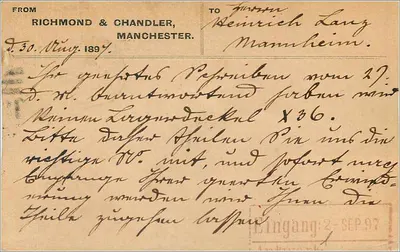 FROM
RICHMOND & CHANDLER,
MANCHESTER.
d. 30. Aug. 1897.
TO Herrn
Heinrich Lanz
Mannheim.
Ihr geehrtes Schreiben vom 27.
d. M. beantwortend haben wir
keinen Lagerdeckel X36.
Bitte daher theilen Sie uns die
richtige No. mit, und sofort nach
Empfange Ihrer geerten Erwied-
erung werden wir Ihnen die
Theile zugehen lassen
Eingang: 2-SEP.97